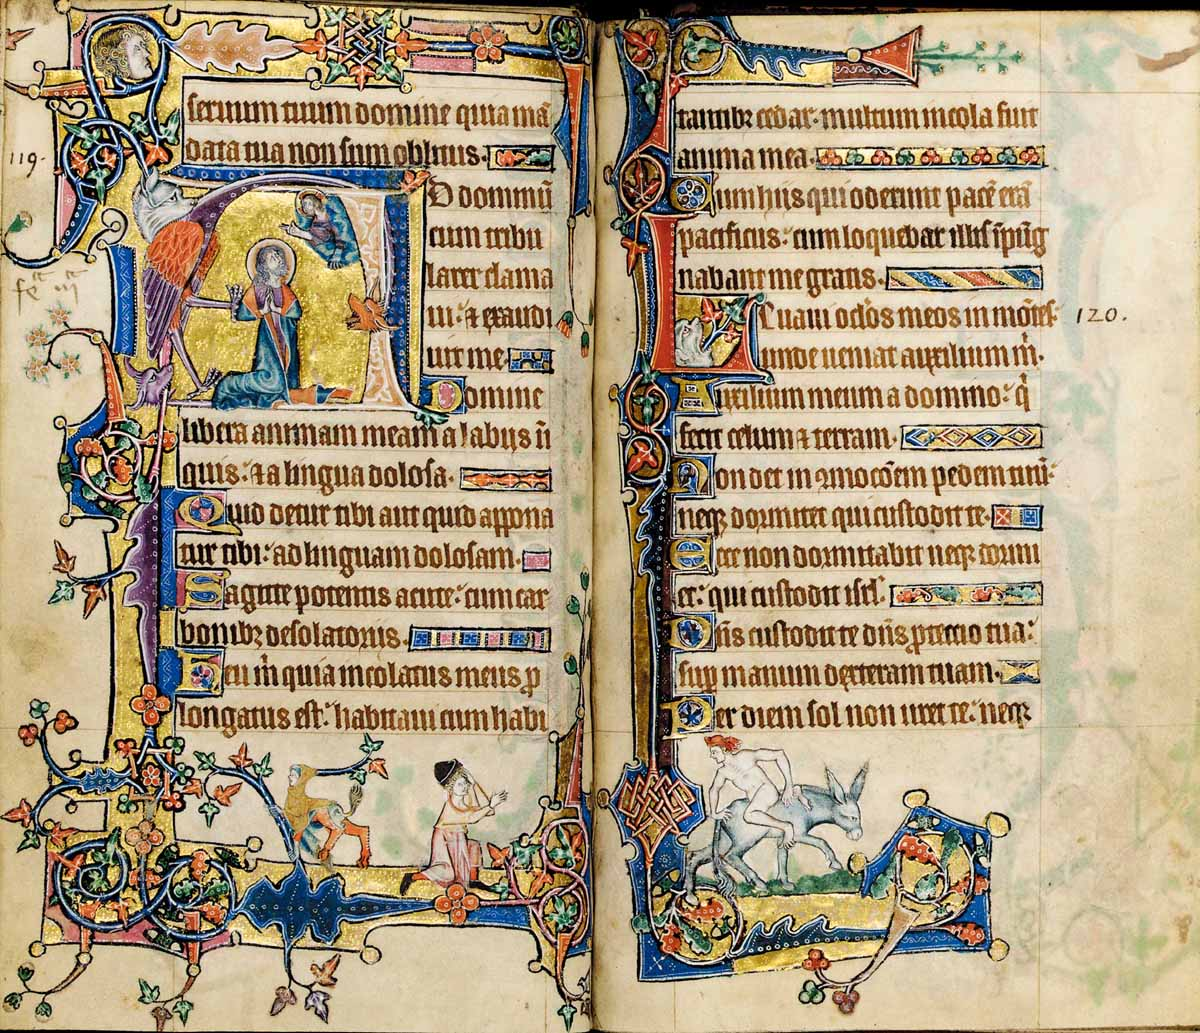 seruum tuum domine quia mā
data tua non sum oblitus.
119.
D dominū
cum tribu
larer clama
ui: & exaudi
uit me
Domine
libera animam meam a labiis ini
quis: & a lingua dolosa.
Quid detur tibi aut quid appona
tur tibi: ad linguam dolosam.
Sagitte potentis acute: cum car
bonibz desolatoriis.
Heu m̄ quia incolatus meus ꝓ
longatus est: habitaui cum habi
tantibz cedar: multum incola fuit
anima mea.
Cum hiis qui oderunt pacē erā
pacificus: cum loquebar illis īpug
nabant me gratis.
Leuaui oclōs meos in mōtes
120.
unde ueniat auxilium m̄.
Auxilium meum a domino: q̄
fecit celum & terram.
Non det in ꝯmocōem pedem tuū:
neqz dormitet qui custodit te.
Ecce non dormitabit neqz dormi
et: qui custodit isrl.
Dn̄s custodit te dn̄s ꝓtectio tua:
sup manum dexteram tuam.
Per diem sol non uret te: neqz